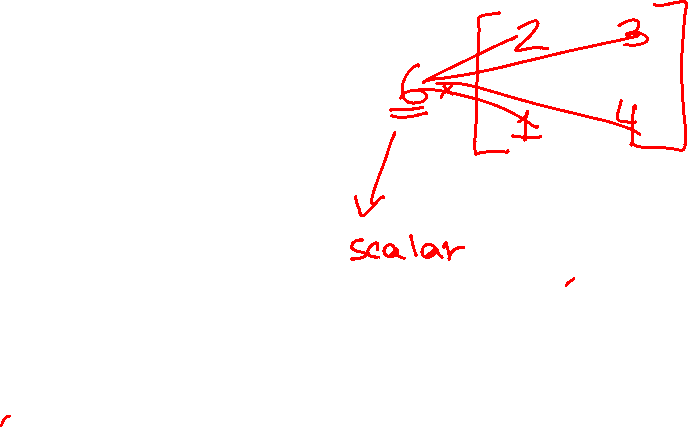 2 3
6 ×
1 4
scalar